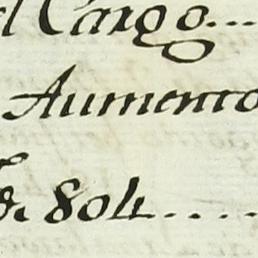 el Cargo...
Aumento
de 804.....